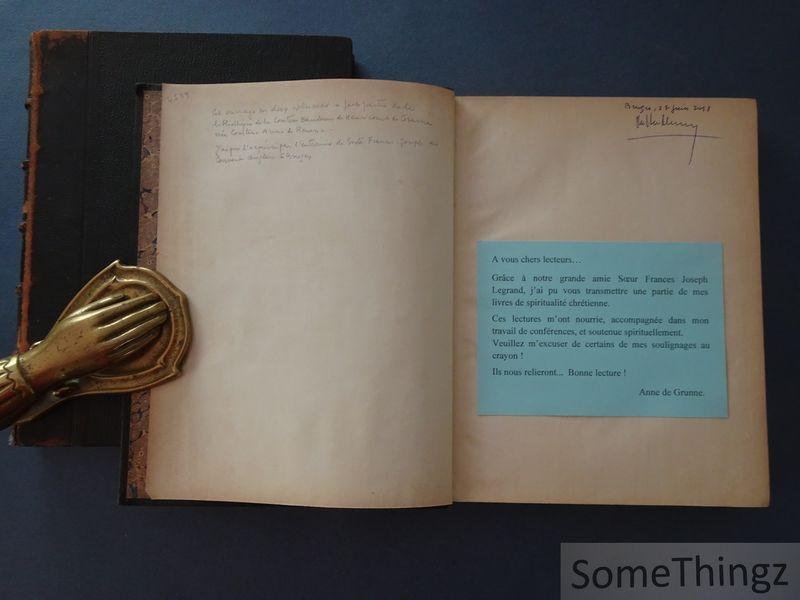 4539
Cet ouvrage en deux volumes a fait partie de la
bibliothèque de la Comtesse de
née Comtesse Anne de
J'ai pu l'acquérir par l'entremise de Sœur Frances Joseph du
Couvent Anglais à Bruges
Bruges, 27 juin
A vous chers lecteurs…
Grâce à notre grande amie Sœur Frances Joseph
Legrand, j’ai pu vous transmettre une partie de mes
livres de spiritualité chrétienne.
Ces lectures m’ont nourrie, accompagnée dans mon
travail de conférences, et soutenue spirituellement.
Veuillez m’excuser de certains de mes soulignages au
crayon !
Ils nous relieront... Bonne lecture !
Anne de Grunne.
SomeThingz